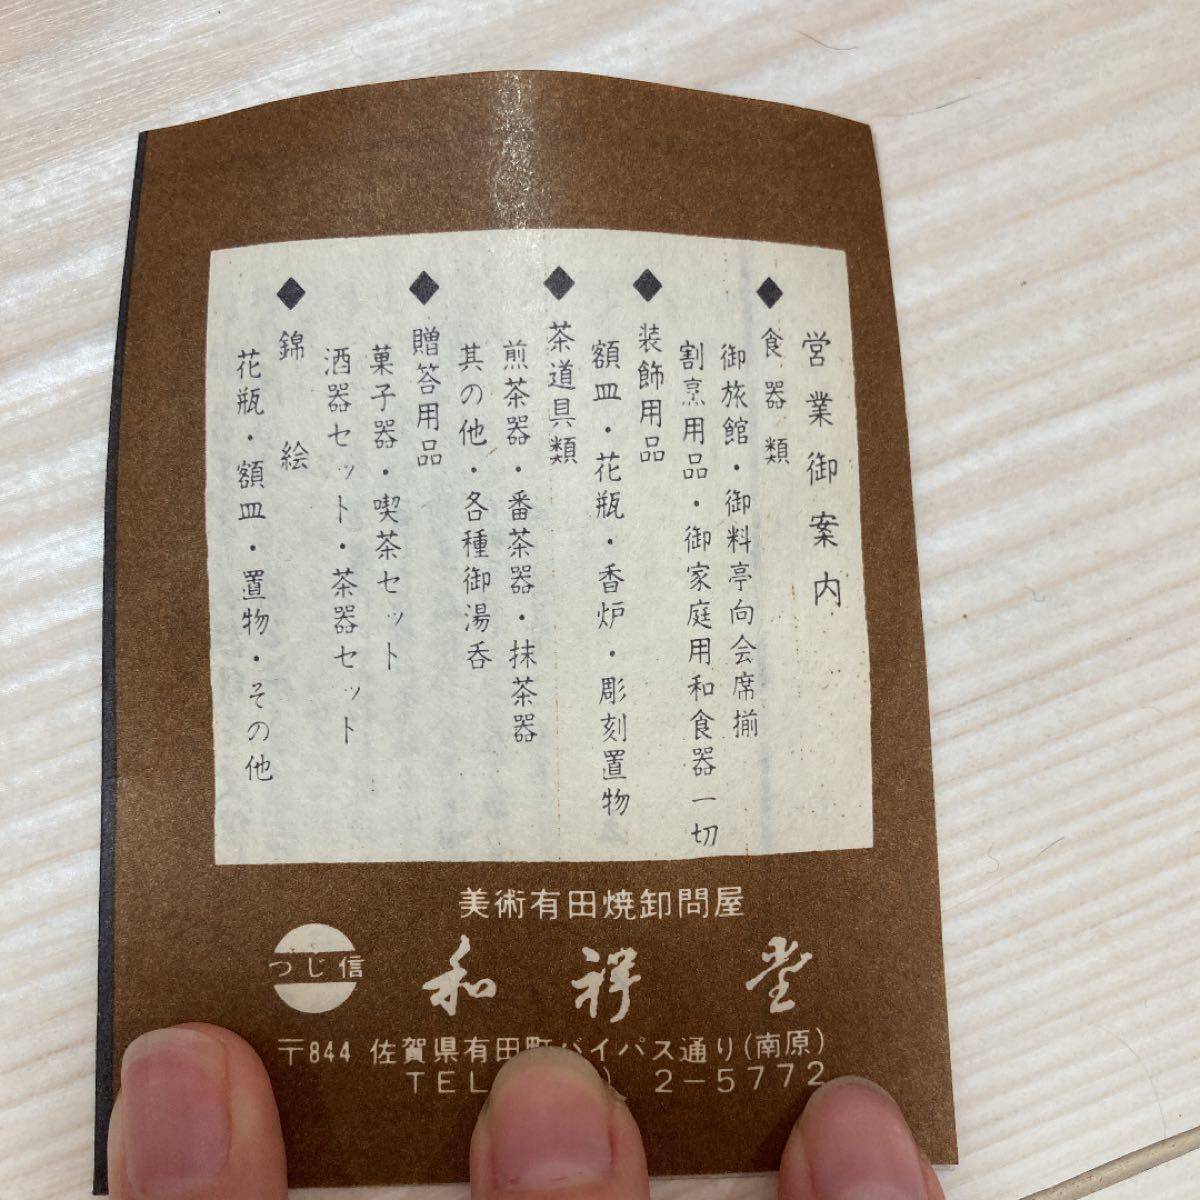 営業御案内
◆食器類
御旅館・御料亭向会席揃
割烹用品・御家庭用和食器一切
◆装飾用品
額皿・花瓶・香炉・彫刻置物
◆茶道具類
煎茶器・番茶器・抹茶器
其の他・各種御湯呑
◆贈答用品
菓子器・喫茶セット
酒器セット・茶器セット
◆錦絵
花瓶・額皿・置物・その他
美術有田焼卸問屋
つじ信
和祥堂
〒844 佐賀県有田町バイパス通り(南原)
TEL 2-5772